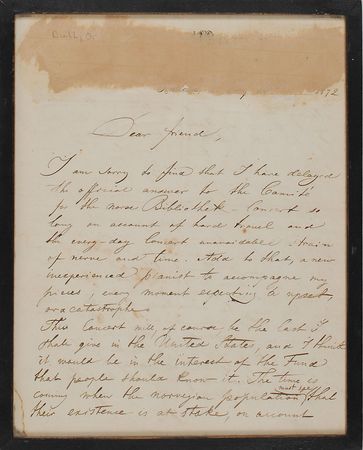 Bull, O.
1872
Dear friend,
I am sorry to find that I have delayed
the official answer to the Comité
for the norse Bibliothek - Concert so
long on account of hard travel and
the every-day Concert unavoidable strain
of nerve and time. Add to that, a new
inexperienced pianist to accompagne my
pieces, every moment expecting a upset
or a catastrophe.
This Concert will, of course be the last I
shall give in the United States, and I think
it would be in the interest of the Fund
that people should know it. The time is
coming when the norwegian population must see that
their existence is at stake, on account